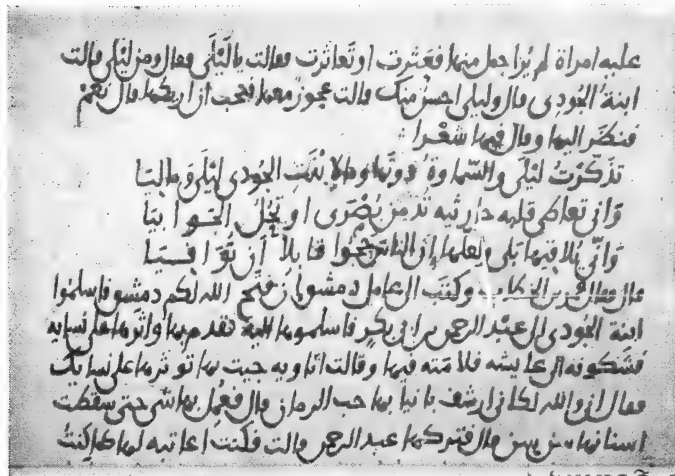 عليه امراة لم يُر اجمل منها فعَثرت او تَعاثرت فقالت يا لَيْلَى فقال ومن ليْلى قالت
ابنة الجُودِى قال وليلى احسنُ منك قالت عجوز معها فتحب ان اريكها قال نعم
فنظر اليها وقال فيها شعْرا
تذكّرتُ ليْلَى والسّماوةُ دونها وما لابْنَةِ الجودى ليْلَى وماليَا
وَانى تعاطى قلبه حارِثيه تُدَمّن بُصْرَى او تَحُل الجوابيا
وَانّى يُلاقيها بلى ولعلها إن الناس حَجوا قابلاً أن تُوافيَا
قال فقال عمر بن الخطاب وكتب الى عامل دمشق ان فتح الله لكم دمشق فاسلموا
ابنة الجُودى الى عبْد الرحمن بن ابى بكرٍ فاسلموها اليه فقدم بها واثرها على نسايه
فشكونه الى عايشه فلامته فيها وقالت انّا وبه جيت بها توثرها على نسايك
فقال انى والله لكانى ارشف بانيابها حب الرمان قال فعُمل بها شى حتى سقطت
اسنانها من بينهن قال فتركها عبد الرحمن قالت فكنت اعاتبه لها كما كنتُ